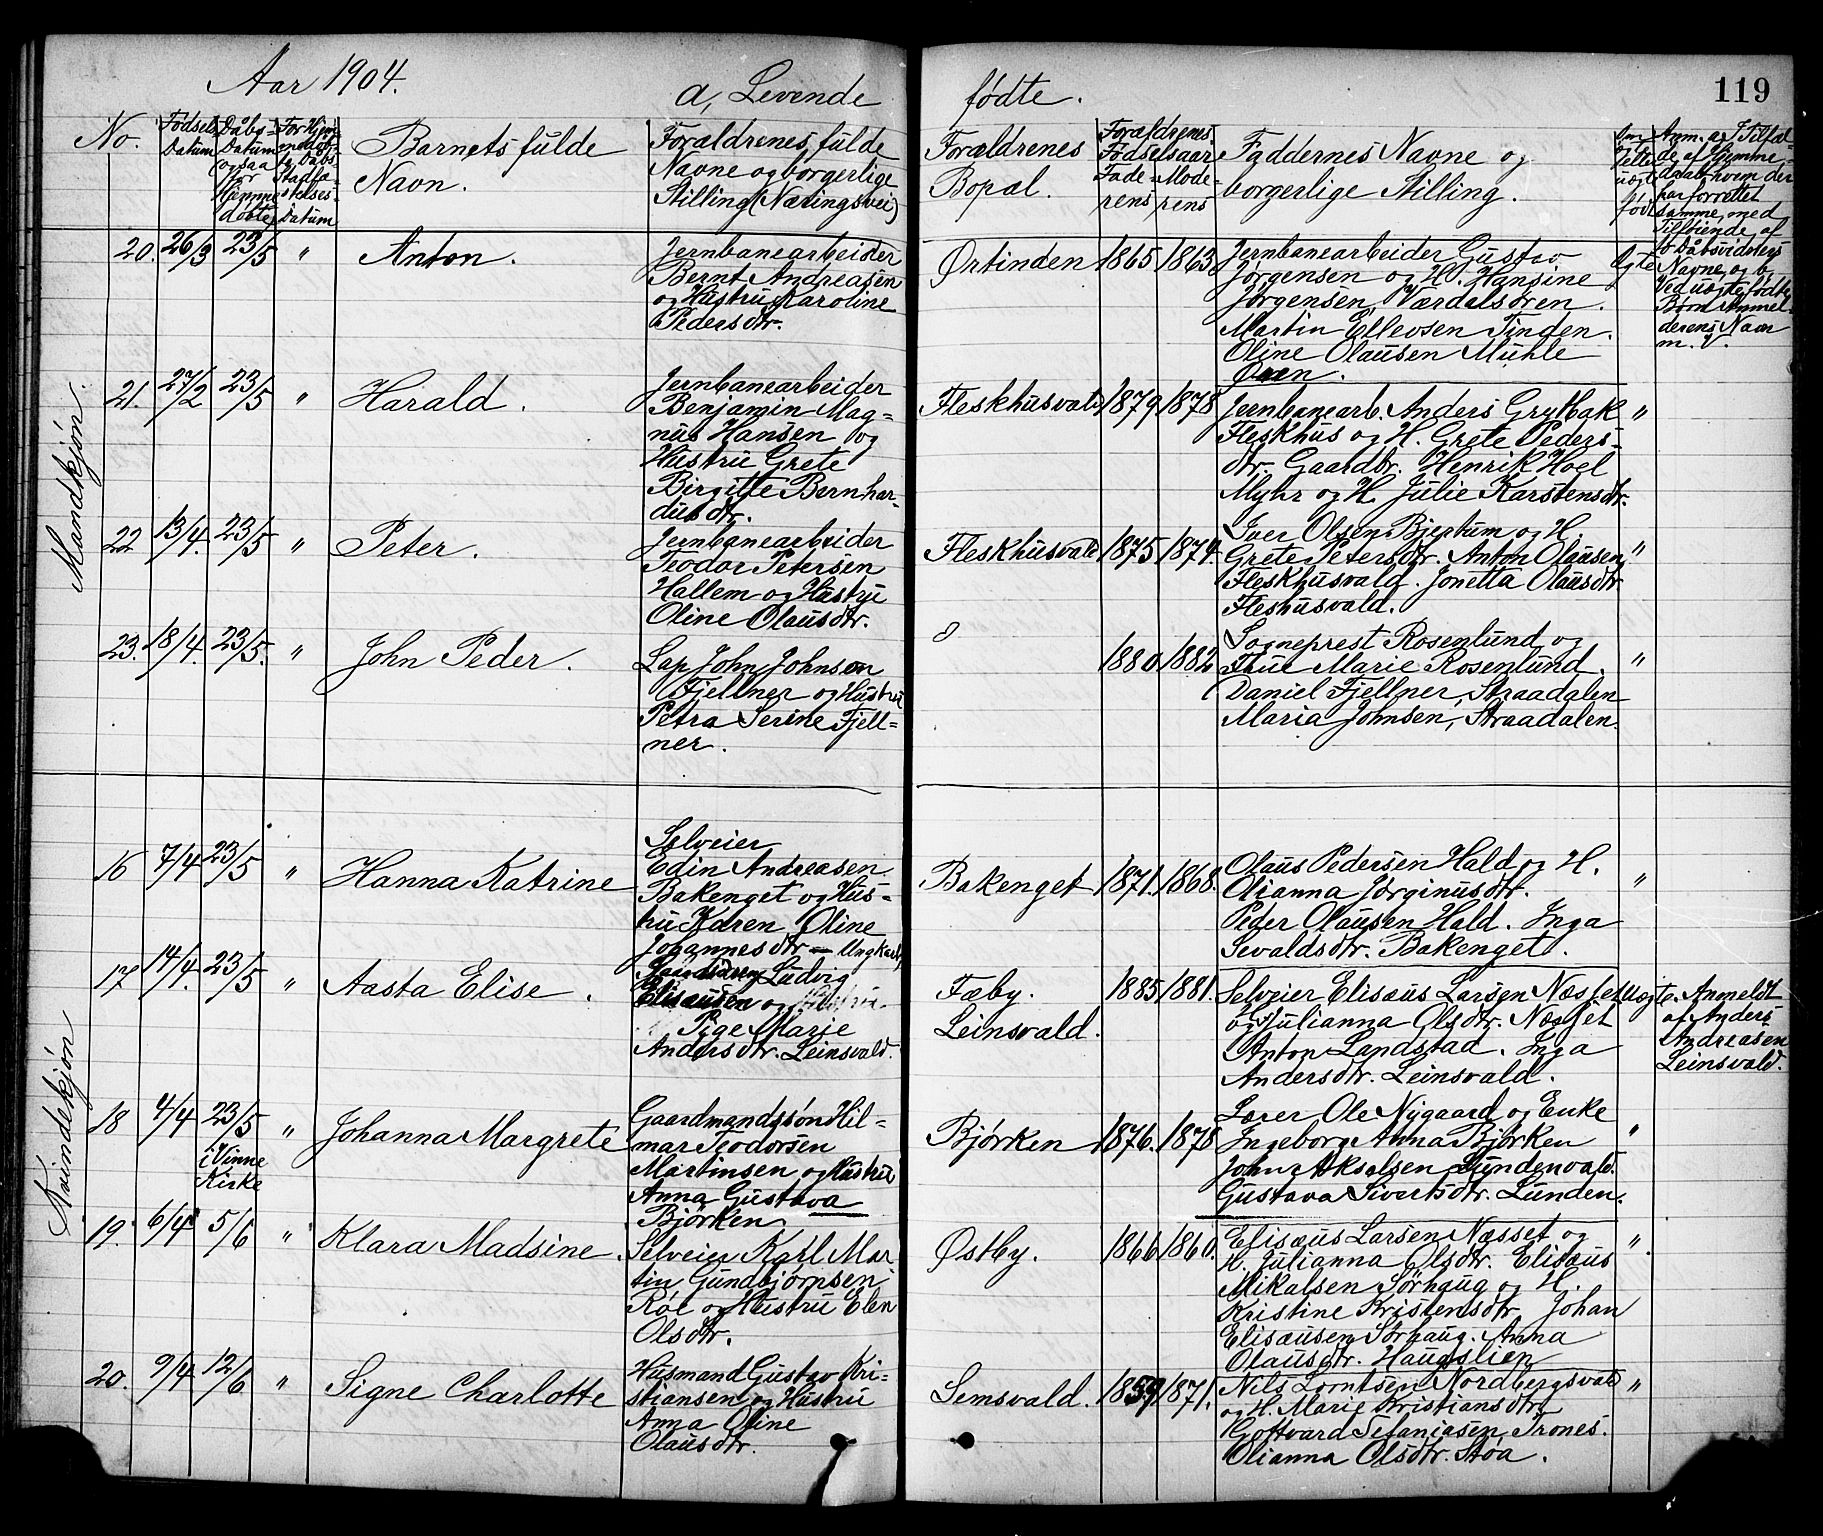 Aar 1904.
a, Levende
fødte.
119
No.
Fødsels
Datum
Dåbs-
Datum
ogsaa
for
Hjemme
døbte
For Hjem
medøb-
te Dåbs
Stadfæ-
stelses-
Datum
Barnets fulde
Navn.
Forældrenes fulde
Navne og borgerlige
Stilling (Næringsvei)
Forældrenes
Bopæl.
Forældrenes
Fødselsaar
Fade-
rens
Mode-
rens
Faddernes Navne og
borgerlige Stilling.
Om
Ægte
uægte
født
Anm. og I Tilfæl-
de af Hjemme-
daab hvem der
har forrettet
samme, med
Tilføiende af
Dåbsvidners
Navne og b.
Ved uægte fødte
Børn Anmel-
derens Navn
m. V.
Mandkjøn.
20. 26/3 23/5 " Anton.
Jernbanearbeider
Bernt Andreasen
og Hustru Karoline
Pedersdtr.
Ørtinden 1865 1863
Jernbanearbeider Gustav
Jørgensen og H. Hansine
Jørgensen Værdalsøren.
Martin Ellevsen Tinden.
Oline Olausen Muhle
Øren.
Ægte
21. 27/2 23/5 " Harald.
Jernbanearbeider
Benjamin Mag-
nus Hansen og
Hustru Grete
Birgitte Bernhar-
dusdtr.
Fleskhusvald 1879 1878
Jernbanearb. Anders Grytbak
Fleskhus og H. Grete Peders-
dtr. Gaardbr. Henrik Hoel
Myhr og H. Julie Karstensdtr.
"
22 13/4. 23/5 " Peter.
Jernbanearbeider
Teodor Petersen
Hallem og Hustru
Oline Olausdtr.
Fleskhusvald 1875 1874.
Iver Olsen Bjertum og H.
Grete Petersdtr. Anton Olausen
Fleskhusvald. Jonetta Olausdtr
Fleshusvald.
"
23. 18/4. 23/5. " John Peder.
Lap John Johnson
Fjellner og Hustru
Petra Serine Fjell-
ner.
1880 1882
Sogneprest Rosenlund og
Frue Marie Rosenlund.
Daniel Fjellner, Straadalen
Maria Johnsen, Straadalen.
"
Kvindekjøn
16 7/4 23/5 " Hanna Katrine
Selveier
Edin Andreasen
Bakenget og Hus-
tru Karen Oline
Johannesdtr
Bakenget 1871. 1868.
Olaus Pedersen Hald og H.
Olianna Jørginusdtr.
Peder Olausen Hald. Inga
Sevaldsdtr. Bakenget.
"
17 14/4. 23/5 " Aasta Elise.
Ungkarl,
Ludvig
Elisæusen og
Pige Marie
Andersdtr. Leinsvald.
Fæby.
Leinsvald.
1885 1881.
Selveier Elisæus Larsen Næsset
og Julianna Olsdtr. Næsset
Anton Landstad. Inga
Andersdtr. Leinsvald.
Uægte.
Anmeldt
af Anders
Andreasen
Leinsvald.
18 4/4 23/5
i Vinne
Kirke
" Johanna Margrete
Gaardmandssøn Hil-
mar Teodorsen
Martinsen og Hustru
Anna Gustava
Bjørken
Bjørken 1876. 1878
Lærer Ole Nygaard og Enke
Ingeborg Anna Bjørken
John Akselsen Lundenvald.
Gustava Sivertsdtr. Lunden.
"
19. 6/4 5/6 " Klara Madsine.
Selveier Karl Mar
tin Gundbjørnsen
Røe og Hustru Elen
Olsdtr.
Østby. 1866 1860.
Elisæus Larsen Næsset og
H. Julianna Olsdtr. Elisæus
Mikalsen Sørhaug og H.
Kristine Kristensdtr. Johan
Elisæusen Sørhaug. Anna
Olausdtr. Haugslien
"
20. 9/4 12/6 " Signe Charlotte
Husmand Gustav Kri-
stiansen og Hustru
Anna Oline
Olausdtr.
Semsvald. 1859 1871.
Nils Lorntsen Nordbergsvald
og H. Marie Kristiansdtr
Gottvard Stefaniasen Trones.
Olianna Olsdtr. Støa.
"